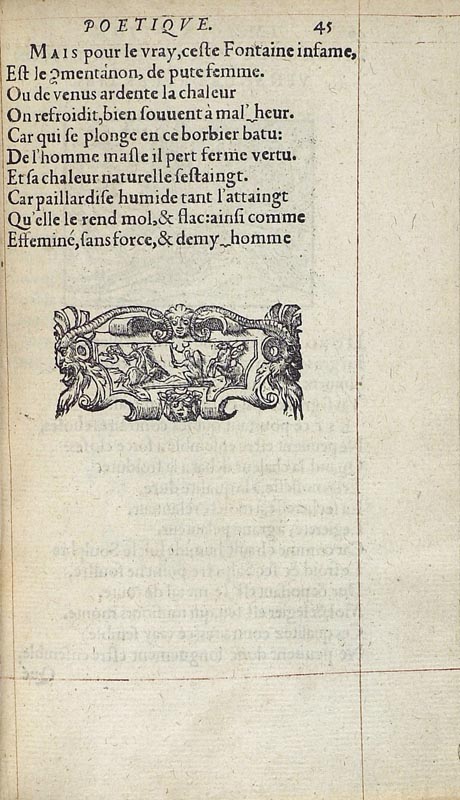 POETIQVE. 45
MAIS pour le vray, ceste Fontaine infame,
Est le ꝯmentánon, de pute femme.
Ou de venus ardente la chaleur
On refroidit, bien souuent à mal'‿heur.
Car qui se plonge en ce borbier batu:
De l'homme masle il pert ferme vertu.
Et sa chaleur naturelle s'estaingt.
Car paillardise humide tant l'attaingt
Qu'elle le rend mol, & flac: ainsi comme
Effeminé, sans force, & demy‿homme